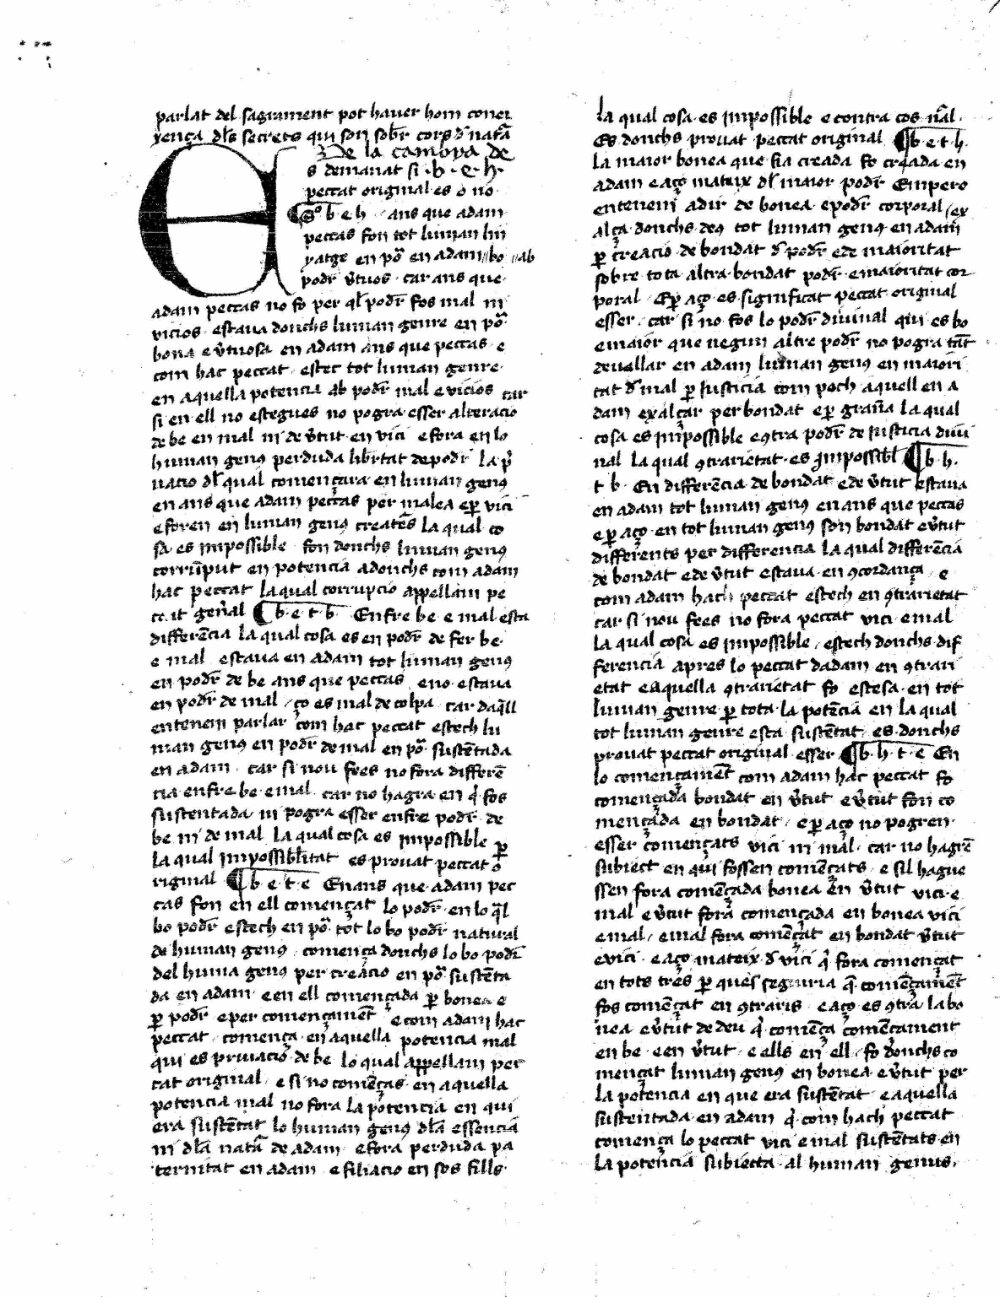 parlat del sagrament pot haver hom conei
xença dls secrets qui son sobr cors d natã
De la cambra de
Es demanat si ·b·e·h·
peccat original es o no
¶ So b·e·h· ans que adam
peccas fon tot human lin
yatge en põ en adam bo ab
podr vtuos· car ans que
adam peccas no fo per ql podr fos mal ni
vicios· estava donchs human genre en põ
bona e vtuosa en adam ans que peccas· e
com hac peccat· estec tot human genre
en aquella potencia ab podr mal e vicios car
si en ell no estegues no pogra esser alteracio
de be en mal ni de vtut en vici e fora en lo
human genꝰ perduda libertat de podr la p
vacio dl qual començara en human genꝰ
en ans que adam peccas per malea e ꝑ vici
e foren en human genꝰ creatẽs la qual co
sa es impossible fon donchs human genꝰ
corrũput en potencia adonchs com adam
hac peccat la qual corrupcio appellam pe
ccat genãl ¶ b·e·t·b· Enfre be e mal esta
differẽcia la qual cosa es en podr de fer be
e mal estava en adam tot human genꝰ
en podr de be ans que peccas e no estava
en podr de mal ço es mal de colpa· car daqll
entenem parlar com hac peccat estech hu
man genꝰ en podr de mal en põ sustentada
en adam· car si nou fees no fora differẽ
cia enfre be e mal· car no hagra en q fos
sustentada ni pogra esser enfre podr de
be ni de mal la qual cosa es impossible ꝑ
la qual impossiblitat es provat peccat o
riginal ¶ b·e·t·e En ans que adam pec
cas fon en ell començat lo podr en lo ql
bo podr estech en põ tot lo bo podr natural
de human genꝰ· comença donchs lo bo podr
del huma genꝰ per creacio en põ sustẽta
da en adam e en ell començada ꝑ bonea e
ꝑ podr e per començamẽt e com adam hac
peccat· comença en aquella potencia mal
qui es privacio de be lo qual appellam pec
cat original· e si no començas en aquella
potencia mal no fora la potencia en qui
era sustẽtat lo human genꝰ dla essencia
ni dla natã de adam· e fora perduda pa
ternitat en adam e filiacio en sos fills·
la qual cosa es impossible e contra cos nãl·
Es donchs provat peccat original ¶ b·e·t·h
la maior bonea que sia creada fo creada en
adam e aço mateix dl maior podr Empero
entenem a dir de bonea e podr corporal ex
alça donchs deꝰ tot human genꝰ en adam
ꝑ creacio de bondat d podr e de maioritat
sobre tota altra bondat podr e maioritat cor
poral· E ꝑ aço es significat peccat original
esser· car si no fos lo podr divinal qui es bo
e maior que negun altre podr no pogra tãt
devallar en adam human genꝰ en maiori
tat d mal ꝑ justicia com poch aquell en a
dam exalçar per bondat e ꝑ grana la qual
cosa es impossible e ꝯtra podr de justicia divi
nal la qual ꝯtrarietat es impossibl ¶ b·h·
t·b· En differẽcia de bondat e de vtut estava
en adam tot human genꝰ en ans que peccas
e ꝑ aço en tot human genꝰ son bondat e vtut
differents per differencia la qual differẽcia
de bondat e de vtut estava en ꝯcordança e
com adam hach peccat estech en ꝯtrarietat
car si nou fees no fora peccat vici e mal
la qual cosa es impossible estech donchs dif
ferencia apres lo peccat dadam en ꝯtrari
etat e aquella ꝯtrarietat fo estesa en tot
human genre ꝑ tota la potẽcia en la qual
tot human genre esta sustẽtat es donchs
provat peccat original esser ¶ b·h·t·e En
lo començamẽt com adam hac peccat fo
començada bondat en vtut e vtut fon co
mençada en bondat e ꝑ aço no pogren
esser començats vici ni mal· car no hagrẽ
subiect en qui fossen començats e sil hague
ssen fora començada bonea en vtut vici e
mal e vtut fora començada en bonea vici
e mal e mal fora començat en bondat vtut
e vici· e aço mateix d vici q fora començat
en tots tres ꝑ ques seguria q començamẽt
fos començat en ꝯtraris e aço es ꝯtra la bo
nea e vtut de deu q comença començament
en be e en vtut e ells en ell fo donchs co
mençat human genꝰ en bonea e vtut per
la potencia en que era sustẽtat e aquella
sustentada en adam q com hach peccat
comença lo peccat vici e mal sustẽtats en
la potencia subiecta al human genus·